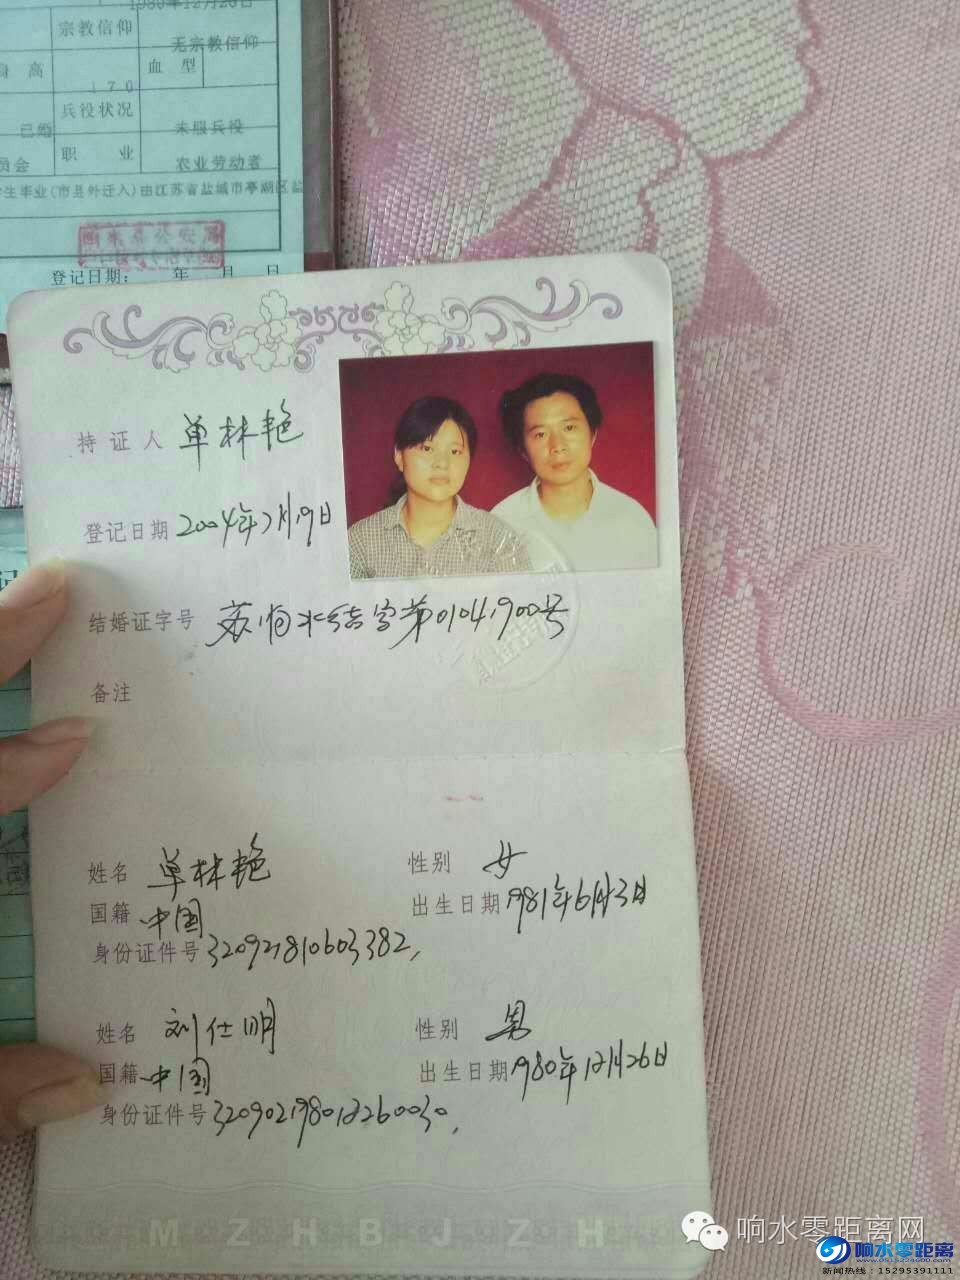 1980年12月26日
宗教信仰
无宗教信仰
身 高
血 型
170
兵役状况
已婚
未服兵役
职 业
农业劳动者
员会
学生毕业(市县外迁入)由江苏省盐城市亭湖区盐
登记日期： 年 月 日
持证人 单林艳
登记日期 2004年2月19日
结婚证字号 苏响水结字第01041900号
备注
姓名 单林艳 性别 女
国籍 中国 出生日期 1981年6月3日
身份证件号 320921810603382
姓名 刘仕明 性别 男
国籍 中国 出生日期 1980年12月26日
身份证件号 320902198012260030
M Z H B J Z H
响水零距离网
响水零距离
新闻热线：15295391111